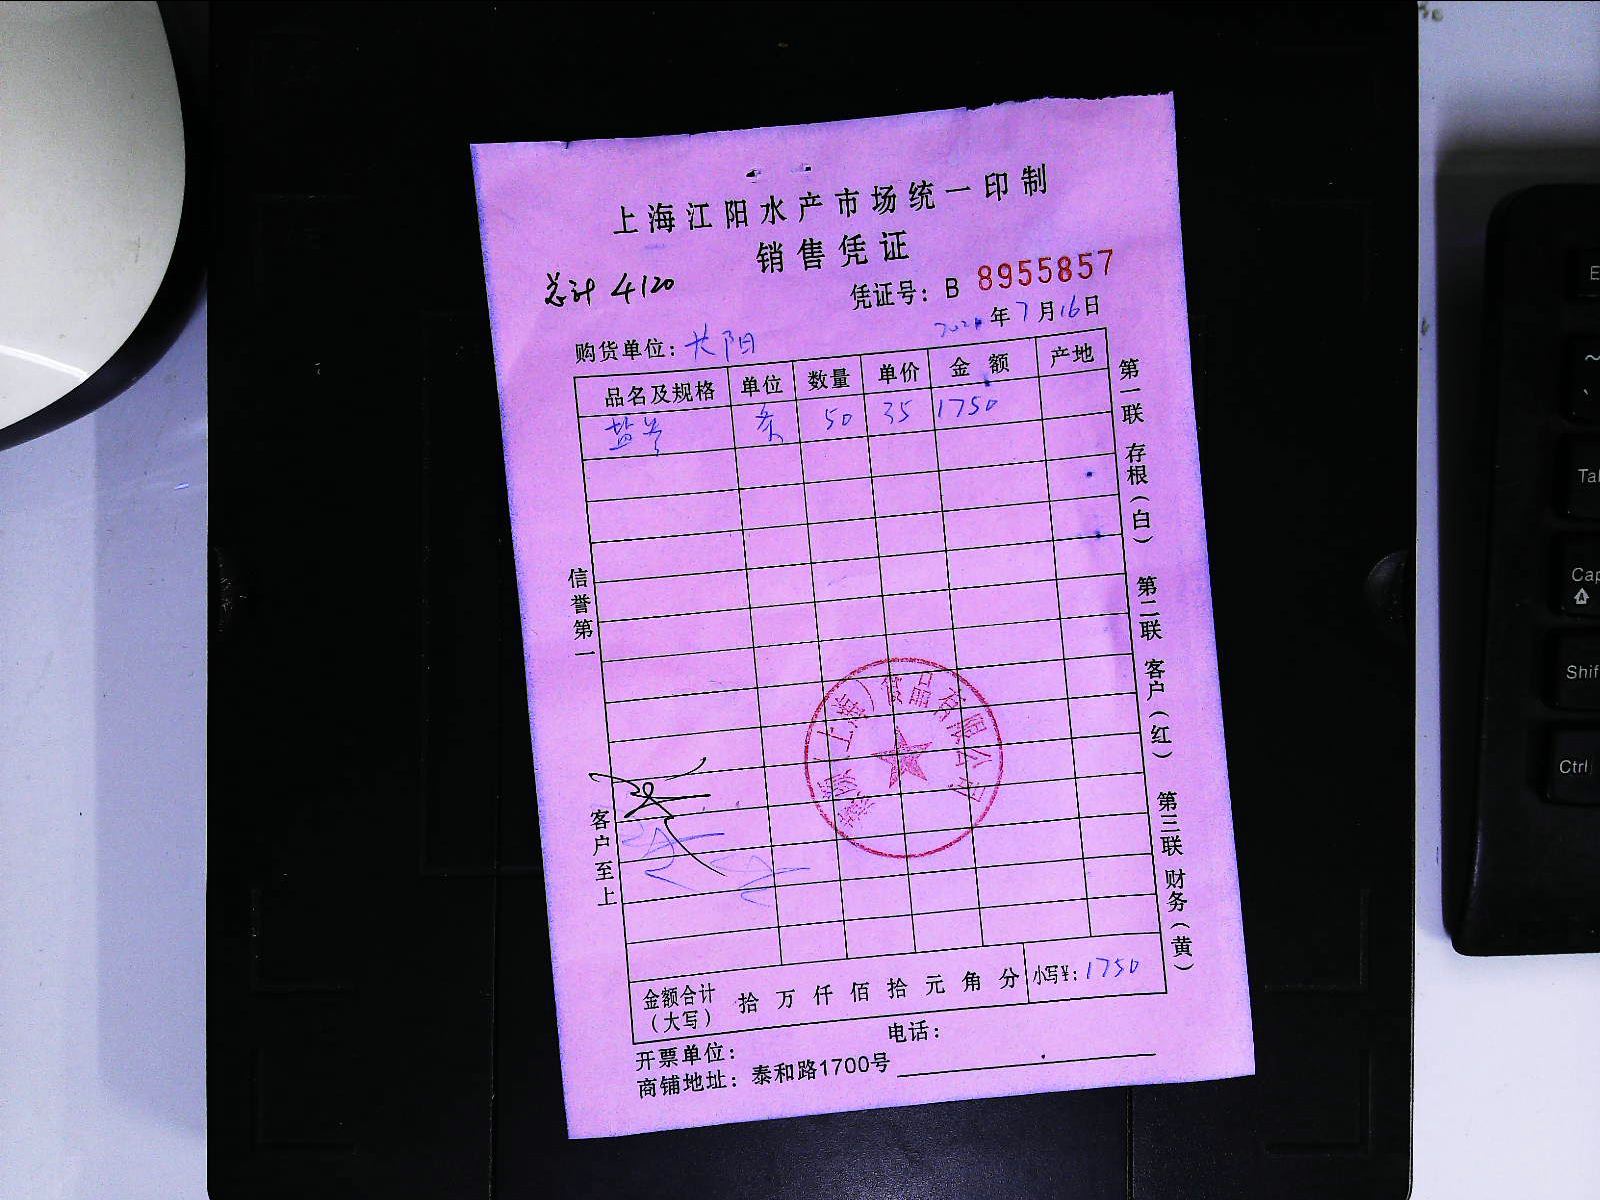 上海江阳水产市场统一印制
销售凭证
总计 4120
凭证号：B 8955857
年7月16日
购货单位：
品名及规格 单位 数量 单价 金额 产地
条 50 35 1750
信誉第一
客户至上
第一联 存根（白） 第二联 客户（红） 第三联 财务（黄）
（上海）食品有限公司
金额合计（大写） 拾万仟佰拾元角分 小写¥：1750
开票单位： 电话：
商铺地址：泰和路1700号
E
Tab
Cap
Shif
Ctrl